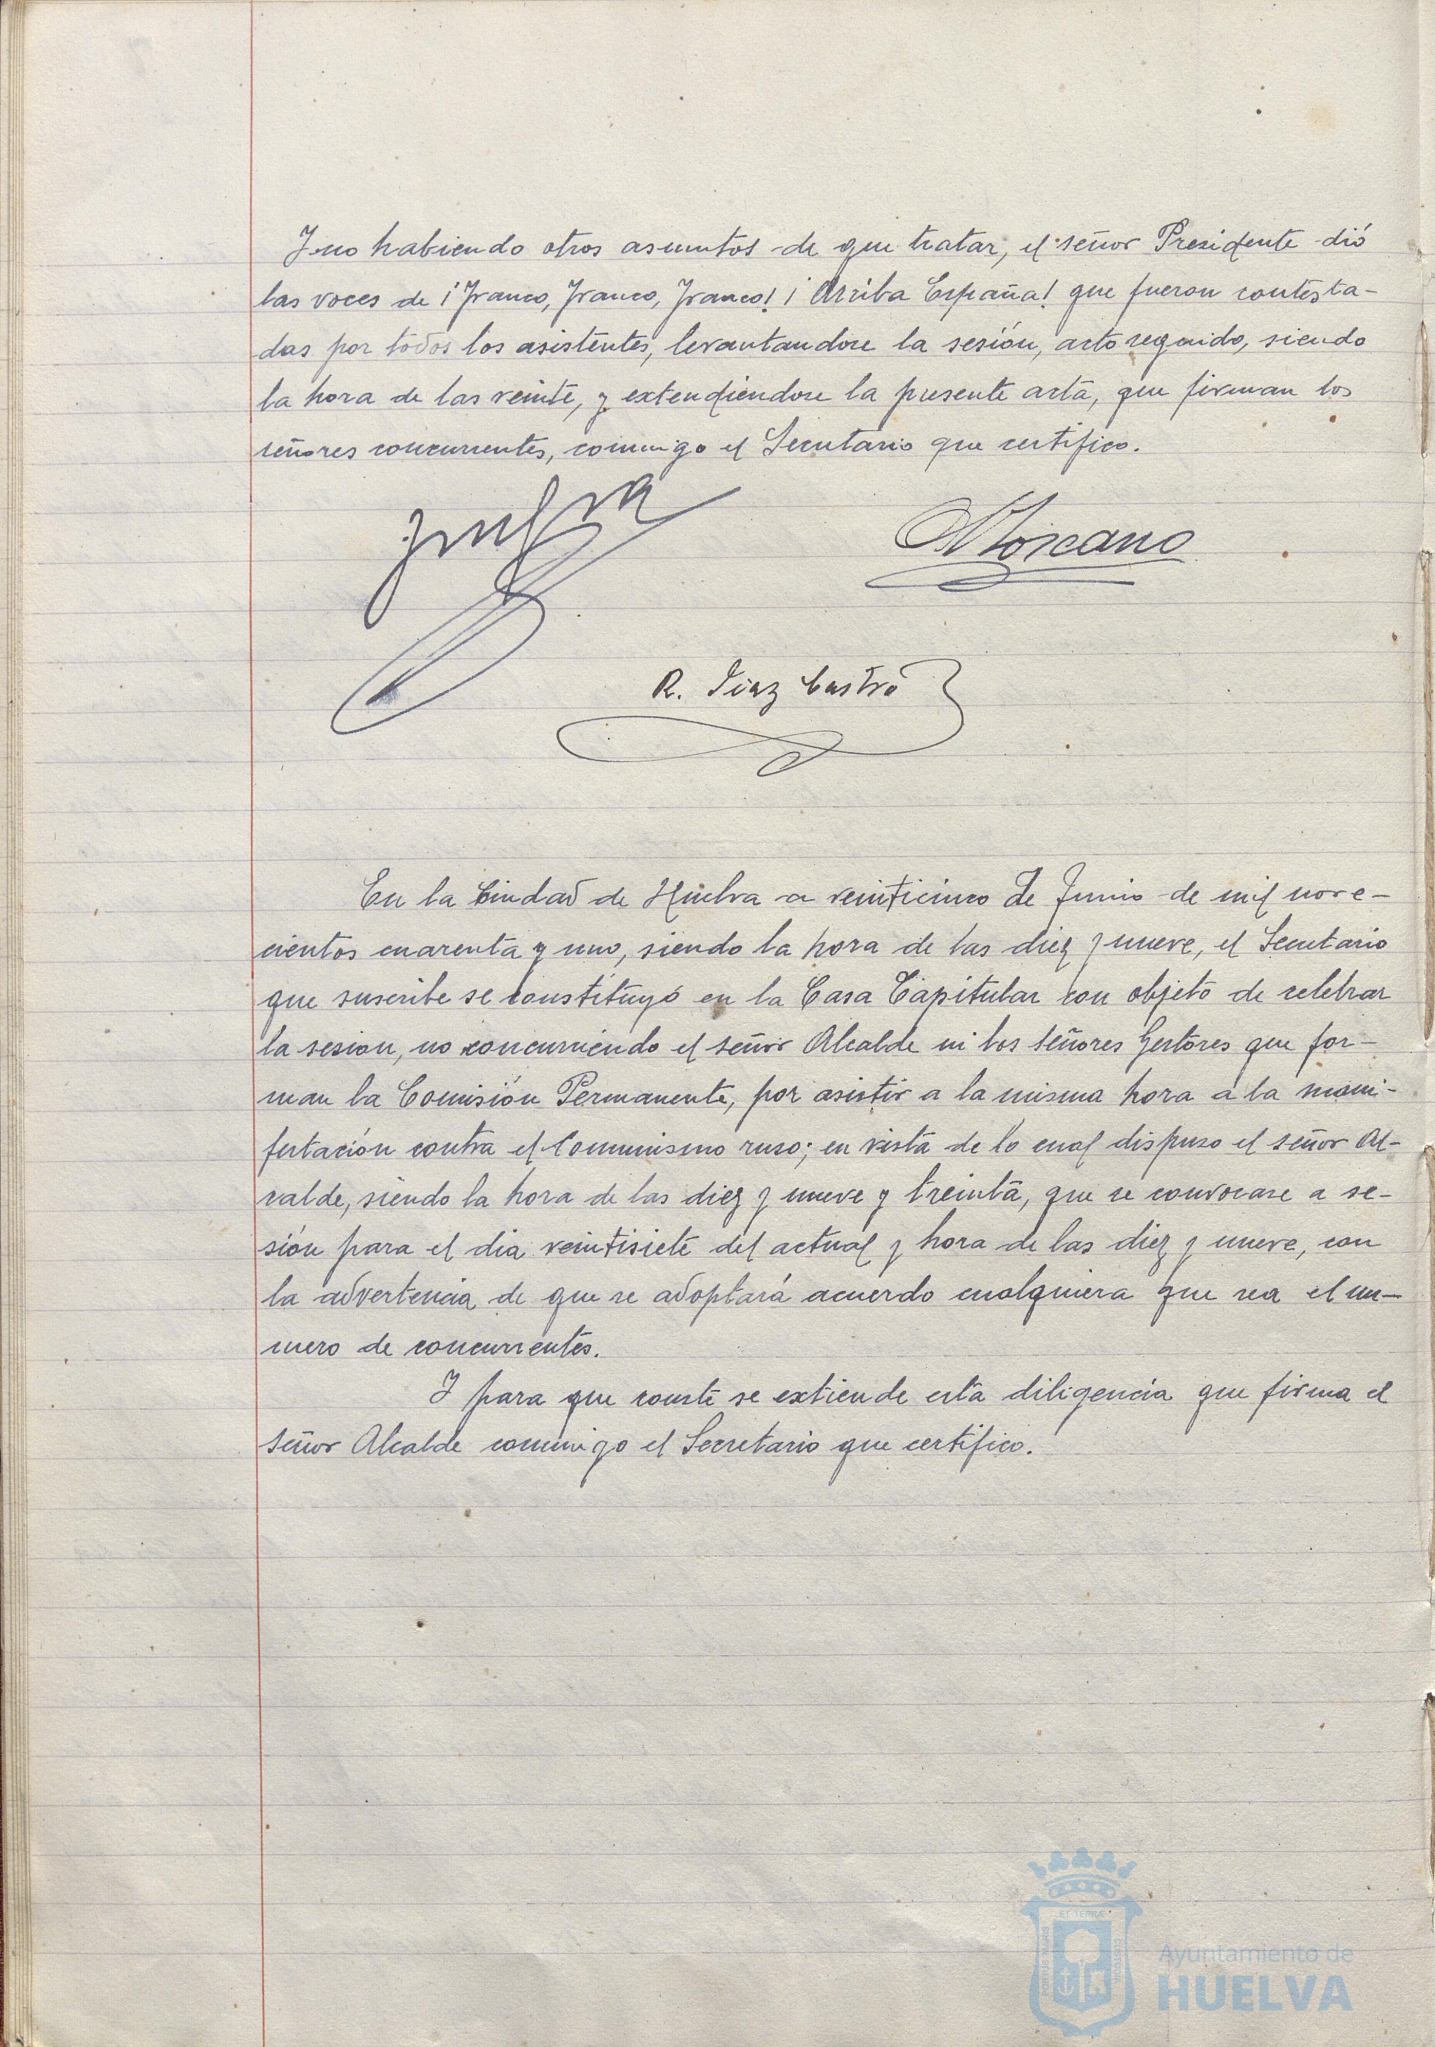 Y no habiendo otros asuntos de que tratar, el señor Presidente dió
las voces de ¡Franco, Franco, Franco! ¡Arriba España! que fueron contesta-
das por todos los asistentes, levantandose la sesión, acto seguido, siendo
la hora de las veinte, y extendiendose la presente acta, que firman los
señores concurrentes, conmigo el Secretario que certifico.
Toscano
R. Diaz Castro
En la Ciudad de Huelva a veinticinco de Junio de mil nove-
cientos cuarenta y uno, siendo la hora de las diez y nueve, el Secretario
que suscribe se constituyó en la Casa Capitular con objeto de celebrar
la sesion, no concurriendo el señor Alcalde ni los señores Gestores que for-
man la Comisión Permanente, por asistir a la misma hora a la mani-
festación contra el Comunismo ruso; en vista de lo cual dispuso el señor Al-
calde, siendo la hora de las diez y nueve y treinta, que se convocase a se-
sión para el dia veintisiete del actual y hora de las diez y nueve, con
la advertencia de que se adoptará acuerdo cualquiera que sea el nu-
mero de concurrentes.
Y para que conste se extiende esta diligencia que firma el
señor Alcalde conmigo el Secretario que certifico.
Ayuntamiento de
HUELVA